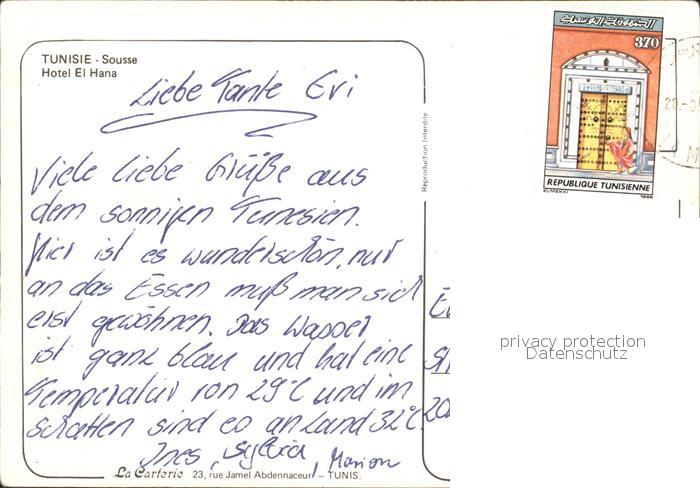 TUNISIE - Sousse
Hotel El Hana
Liebe Tante Evi
Viele liebe Grüße aus
dem sonnigen Tunesien.
Hier ist es wunderschön, nur
an das Essen muß man sich
erst gewöhnen. Das Wasser
ist ganz blau und hat eine
Temperatur von 29°C und im
Schatten sind es an Land 32°C
Ines, Sylvia, Marion
La Carterie 23, rue Jamel Abdennaceur - TUNIS.
Reproduction Interdite
370
REPUBLIQUE TUNISIENNE
ELMEKKI 1988
privacy protection
Datenschutz